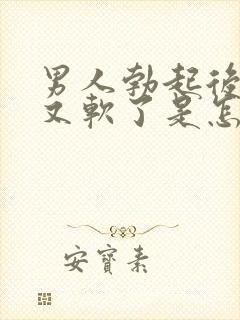 男人勃起後
又軟了是怎
安寶素